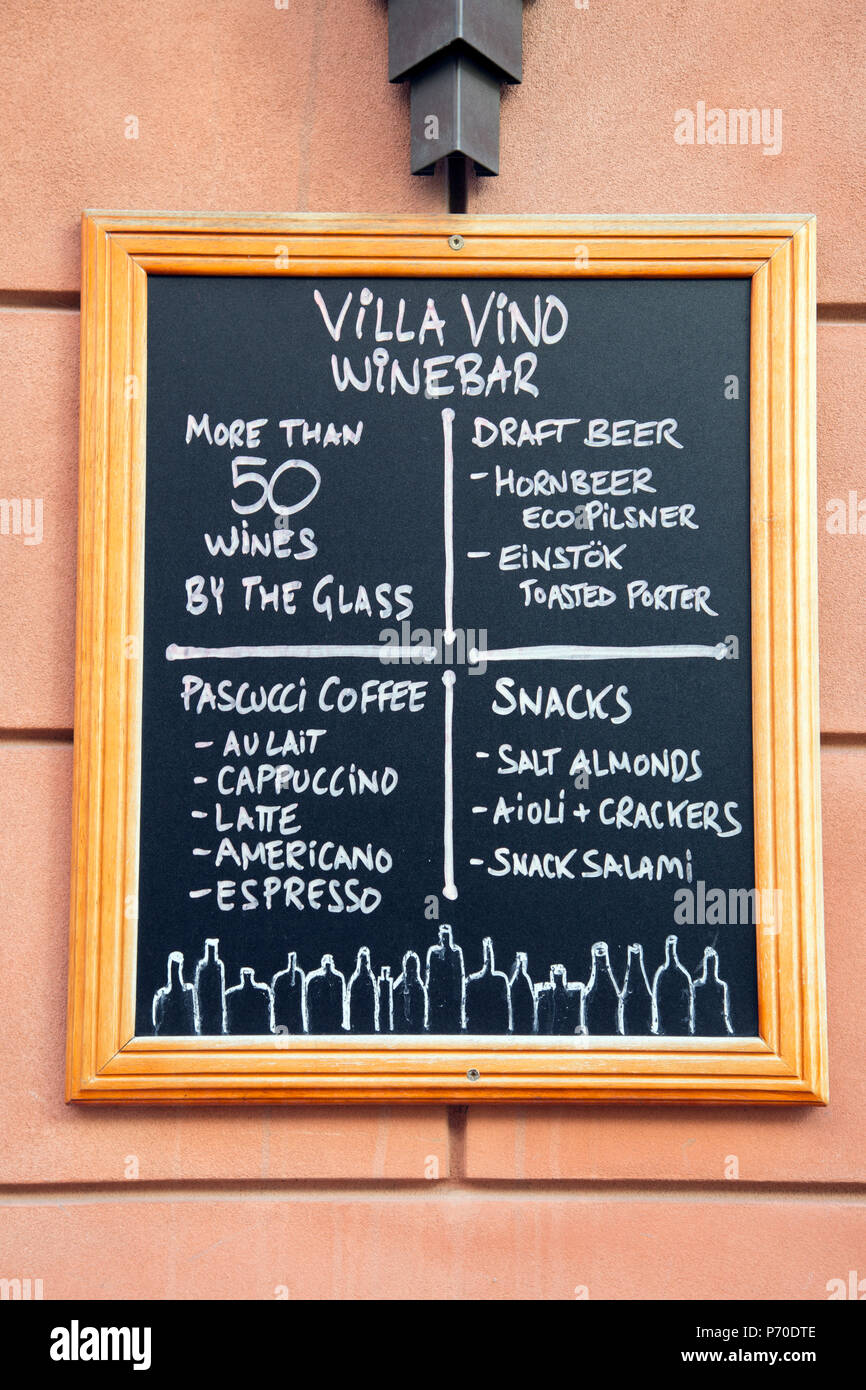 VILLA VINO
WINEBAR
MORE THAN
50
WINES
BY THE GLASS
DRAFT BEER
- HORNBEER
ECO PILSNER
- EINSTÖK
TOASTED PORTER
PASCUCCI COFFEE
- AU LAIT
- CAPPUCCINO
- LATTE
- AMERICANO
- ESPRESSO
SNACKS
- SALT ALMONDS
- AIOLI + CRACKERS
- SNACK SALAMI
alamy
alamy stock photo
P70DTE
www.alamy.com